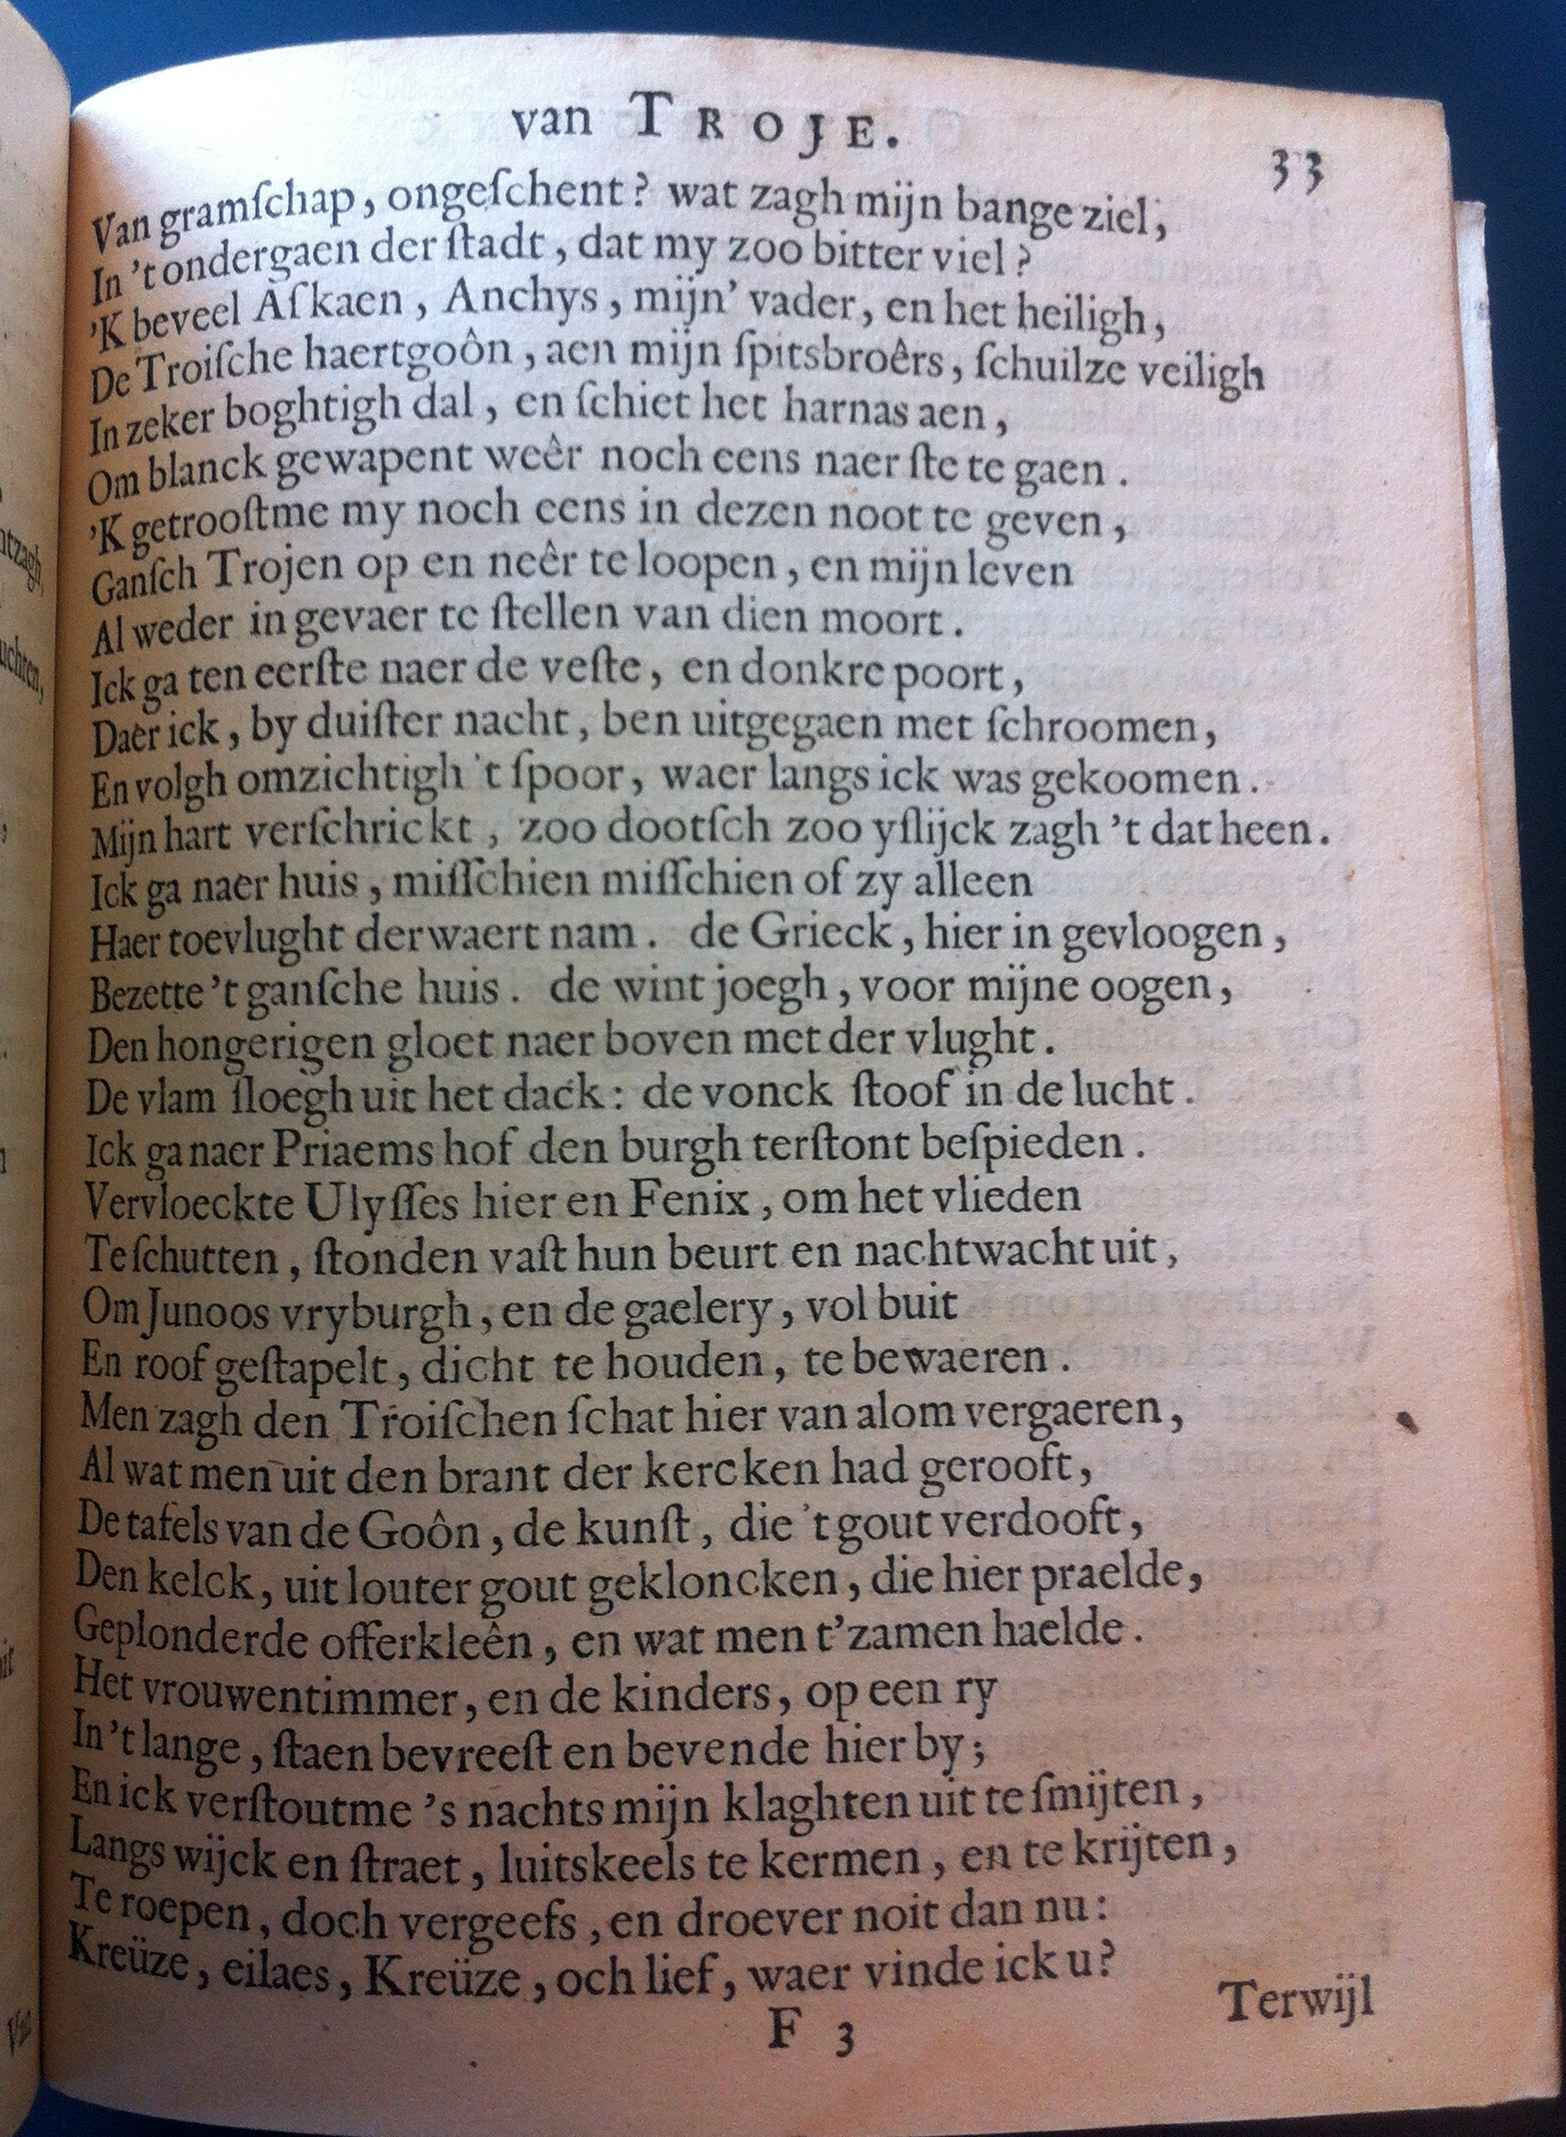 van TROJE.
33
Van gramſchap, ongeſchent? wat zagh mijn bange ziel,
In 't ondergaen der ſtadt, dat my zoo bitter viel?
'K beveel Aſkaen, Anchys, mijn' vader, en het heiligh,
De Troiſche haertgoôn, aen mijn ſpitsbroêrs, ſchuilze veiligh
In zeker boghtigh dal, en ſchiet het harnas aen,
Om blanck gewapent weêr noch eens naer ſte te gaen.
'K getrooſtme my noch eens in dezen noot te geven,
Ganſch Trojen op en neêr te loopen, en mijn leven
Al weder in gevaer te ſtellen van dien moort.
Ick ga ten eerſte naer de veſte, en donkre poort,
Daer ick, by duiſter nacht, ben uitgegaen met ſchroomen,
En volgh omzichtigh 't ſpoor, waer langs ick was gekoomen.
Mijn hart verſchrickt, zoo dootſch zoo yſlijck zagh 't dat heen.
Ick ga naer huis, miſſchien miſſchien of zy alleen
Haer toevlught derwaert nam. de Grieck, hier in gevloogen,
Bezette 't ganſche huis. de wint joegh, voor mijne oogen,
Den hongerigen gloet naer boven met der vlught.
De vlam ſloegh uit het dack: de vonck ſtoof in de lucht.
Ick ga naer Priaems hof den burgh terſtont beſpieden.
Vervloeckte Ulyſſes hier en Fenix, om het vlieden
Te ſchutten, ſtonden vaſt hun beurt en nachtwacht uit,
Om Junoos vryburgh, en de gaelery, vol buit
En roof geſtapelt, dicht te houden, te bewaeren.
Men zagh den Troiſchen ſchat hier van alom vergaeren,
Al wat men uit den brant der kercken had gerooft,
De tafels van de Goôn, de kunſt, die 't gout verdooft,
Den kelck, uit louter gout gekloncken, die hier praelde,
Geplonderde offerkleên, en wat men t'zamen haelde.
Het vrouwentimmer, en de kinders, op een ry
In 't lange, ſtaen bevreeſt en bevende hier by;
En ick verſtoutme 's nachts mijn klaghten uit te ſmijten,
Langs wijck en ſtraet, luitskeels te kermen, en te krijten,
Te roepen, doch vergeefs, en droever noit dan nu:
Kreüze, eilaes, Kreüze, och lief, waer vinde ick u?
F 3
Terwijl